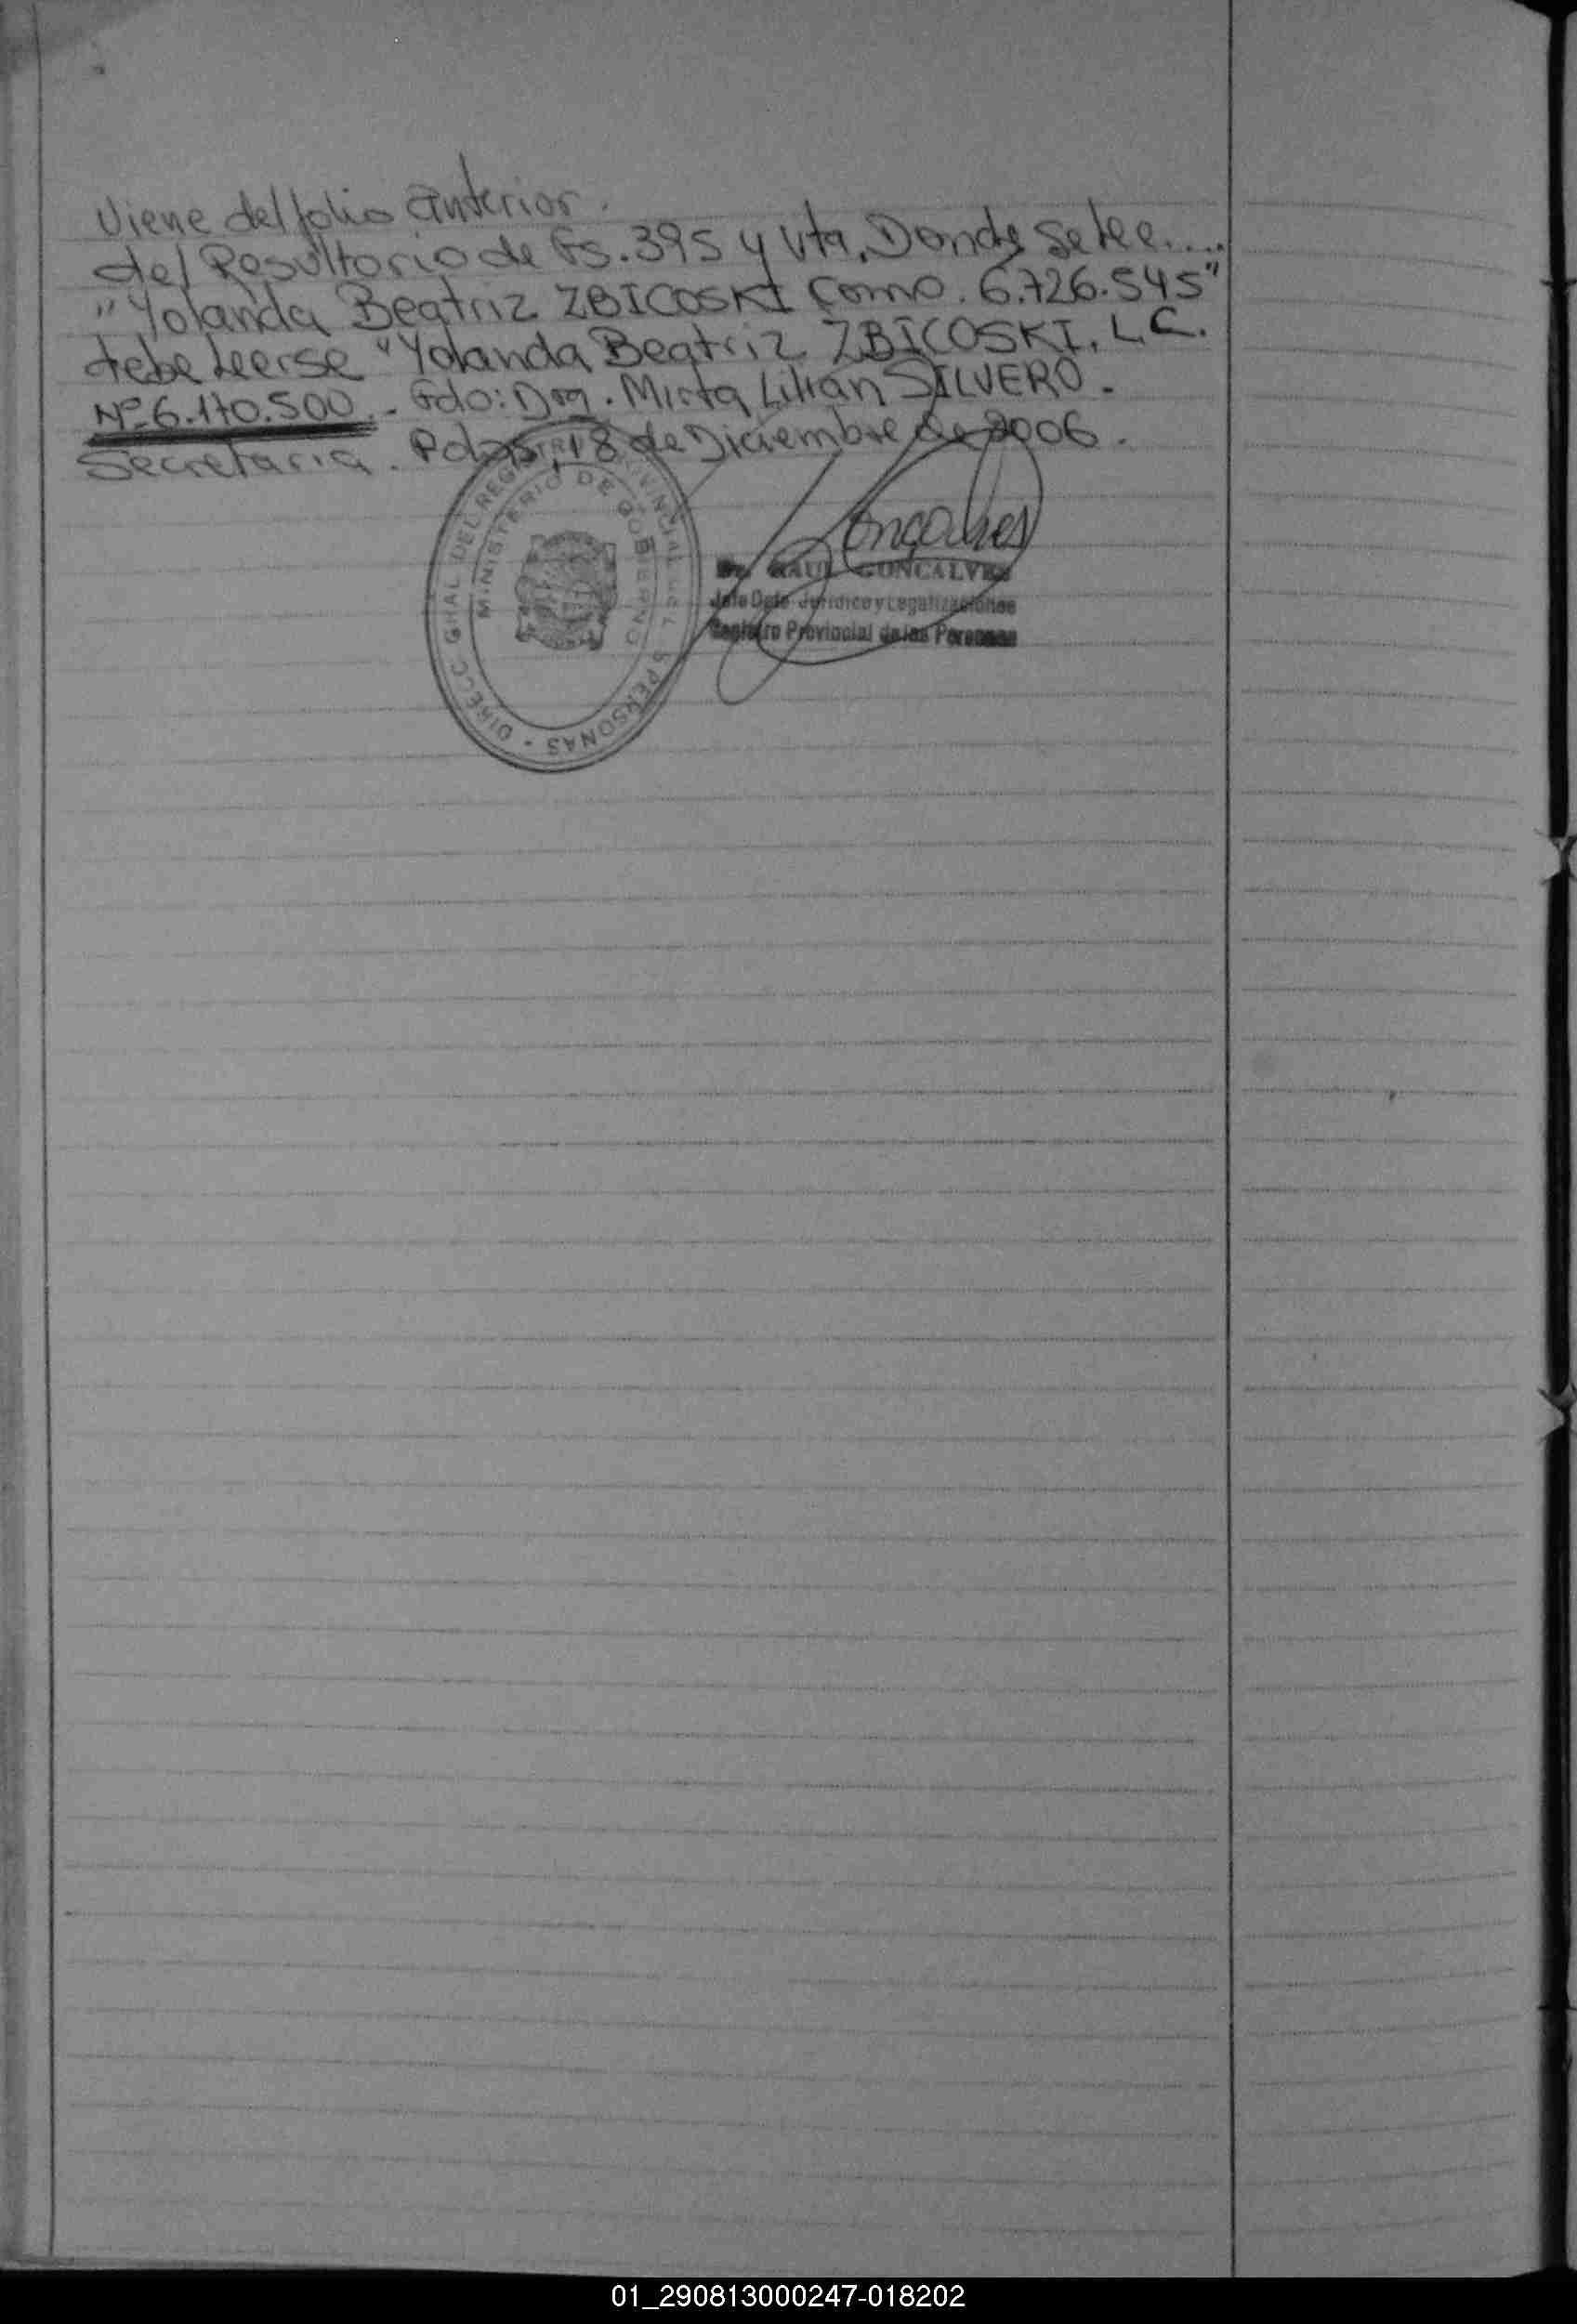 Viene del folio anterior.
del Resultorio de Fs. 395 y Vta, Donde se lee....
"Yolanda Beatriz ZBICOSKI Como. 6.726.545"
debe Leerse "Yolanda Beatriz ZBICOSKI, L.C.
Nº 6.170.500.- Fdo: Dra. Mirta Lilian SILVERO.
Secretaria. Pdas, 18 de Diciembre de 2006.
MINISTERIO DE GOBIERNO
DIRECC GRAL DEL REG PERSONAS
Goncalves
RAUL GONCALVES
Jefe Dpto Jurídico y Legalizaciones
Registro Provincial de las Personas
01_290813000247-018202